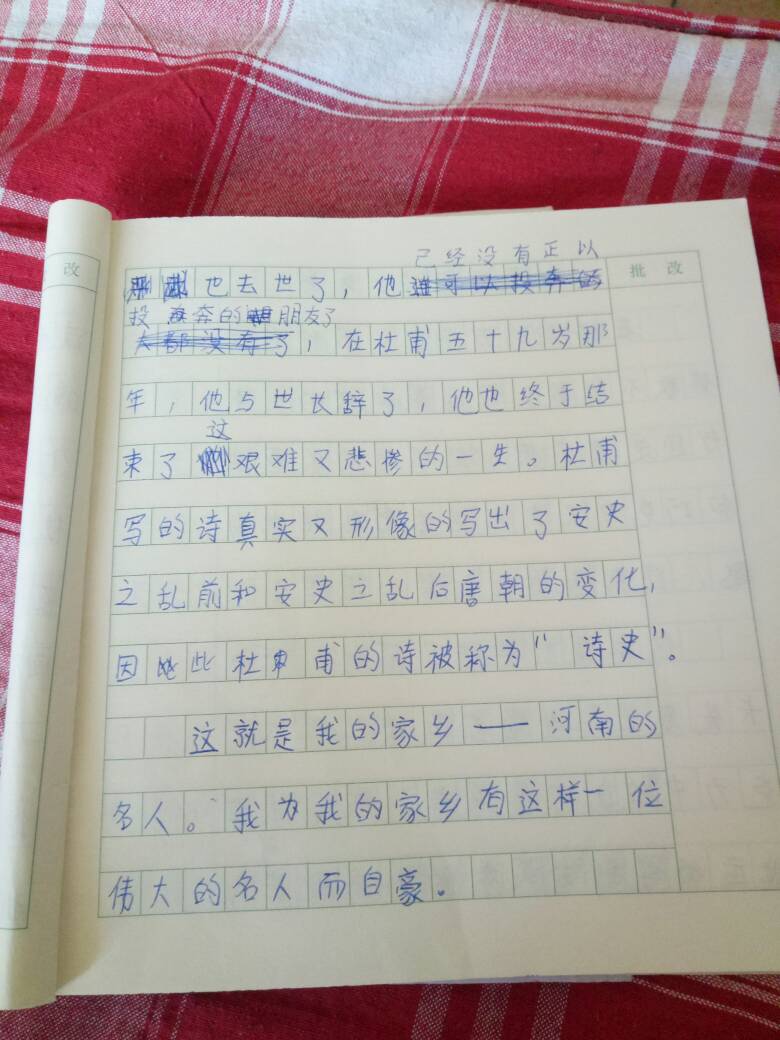 改
批改
已经没有正以
也去世了，他谁可以投奔的
投奔的朋友了
人都没有了，在杜甫五十九岁那
年，他与世长辞了，他也终于结
这
束了艰难又悲惨的一生。杜甫
写的诗真实又形像的写出了安史
之乱前和安史之乱后唐朝的变化，
因此杜甫的诗被称为“诗史”。
这就是我的家乡——河南的
名人。我为我的家乡有这样一位
伟大的名人而自豪。